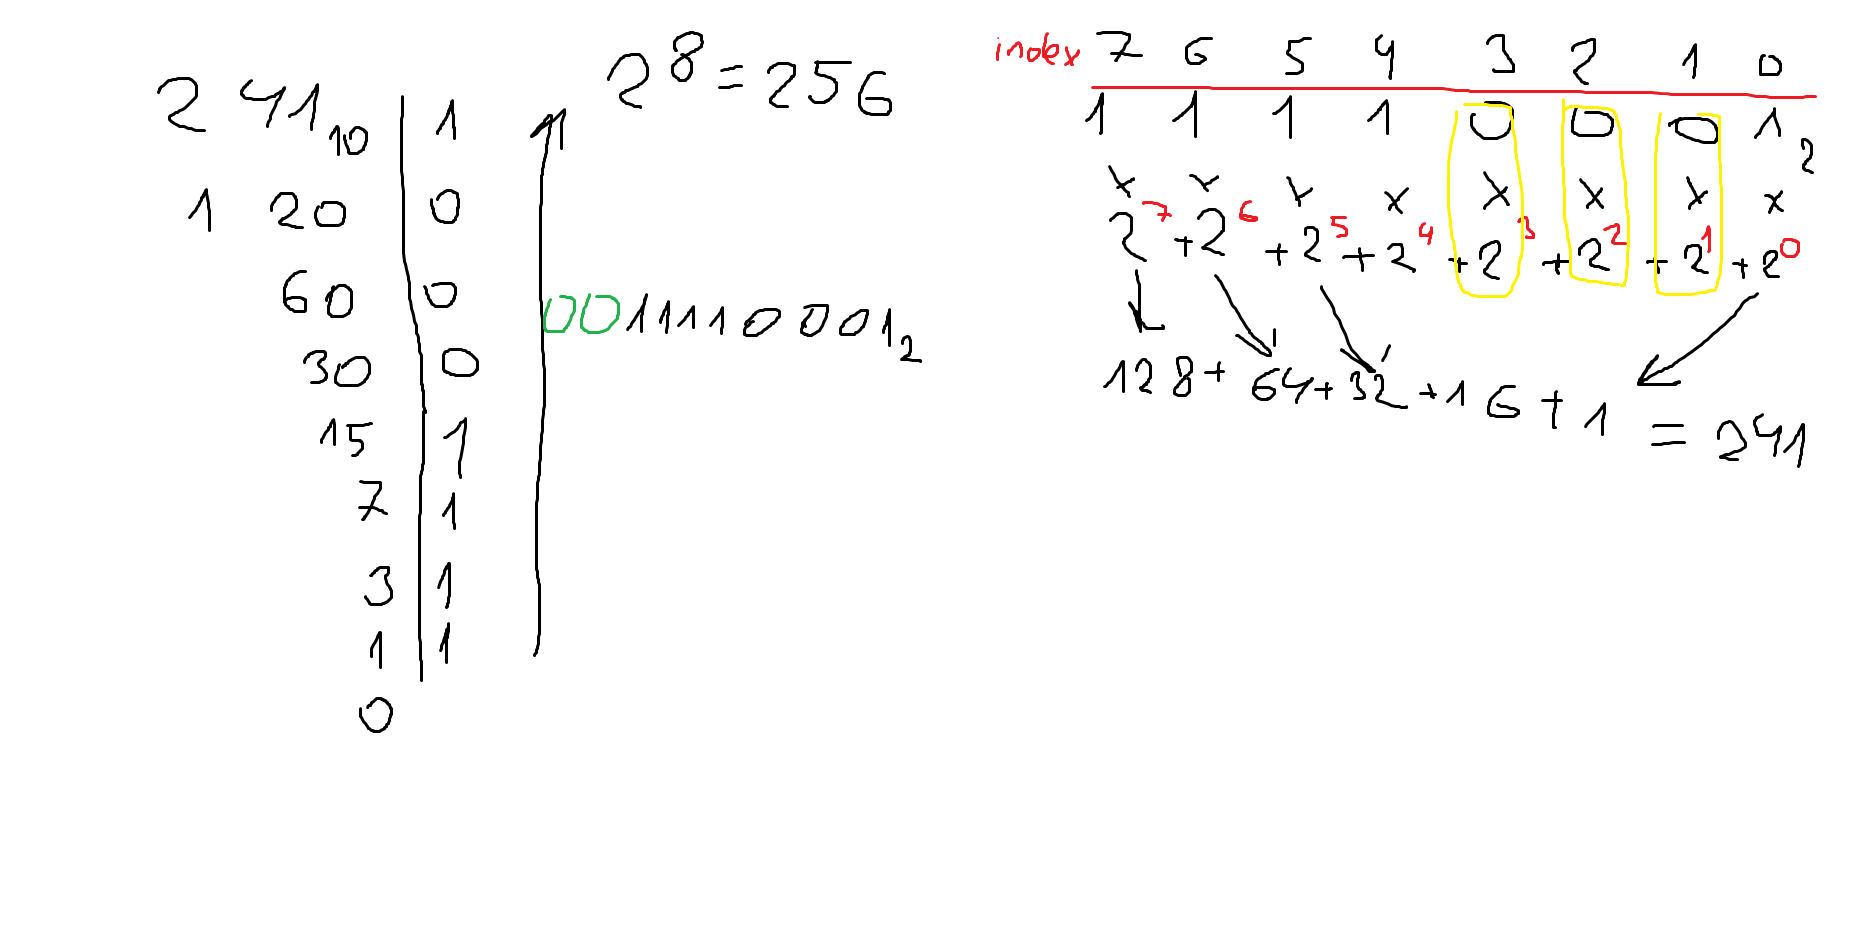 2 41₁₀ | 1
1 20 | 0
60 | 0
30 | 0
15 | 1
7 | 1
3 | 1
1 | 1
0
2⁸ = 256
0011110001₂
index 7 6 5 4 3 2 1 0
1 1 1 1 0 0 0 1₂
x x x x x x x x
2⁷ + 2⁶ + 2⁵ + 2⁴ + 2³ + 2² + 2¹ + 2⁰
128 + 64 + 32 + 16 + 1 = 241